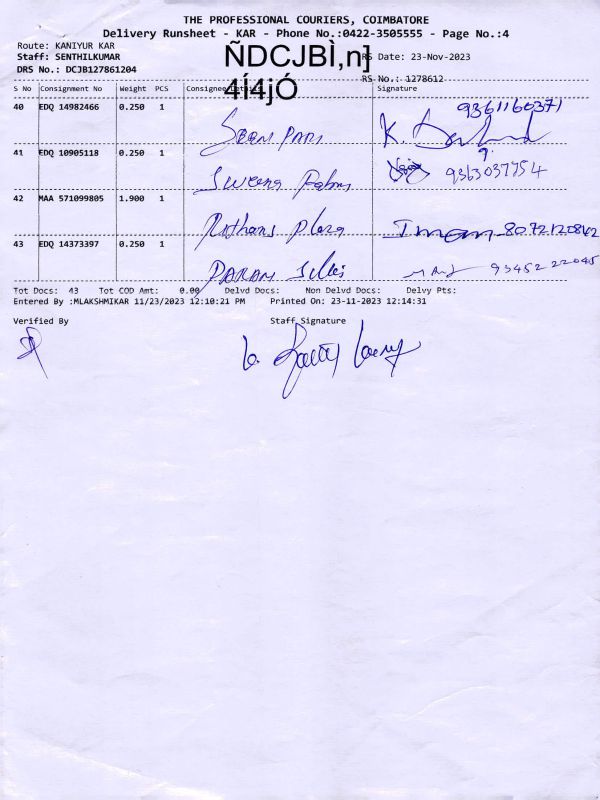 THE PROFESSIONAL COURIERS, COIMBATORE
Delivery Runsheet - KAR - Phone No.:0422-3505555 - Page No.:4
Route: KANIYUR KAR
Staff: SENTHILKUMAR
ÑDCJBÌ,n]
RS Date: 23-Nov-2023
DRS No.: DCJB127861204
4Í4jÓ
RS No.: 1278612
S No Consignment No Weight PCS Consignee Details Signature
40 EDQ 14982466 0.250 1 9361160371
41 EDQ 10905118 0.250 1 9363037754
42 MAA 571099805 1.900 1 Rathans Plaza Iman 8072120862
43 EDQ 14373397 0.250 1 PARAM 9345222045
Tot Docs: 43 Tot COD Amt: 0.00 Delvd Docs: Non Delvd Docs: Delvy Pts:
Entered By :MLAKSHMIKAR 11/23/2023 12:10:21 PM Printed On: 23-11-2023 12:14:31
Verified By Staff Signature